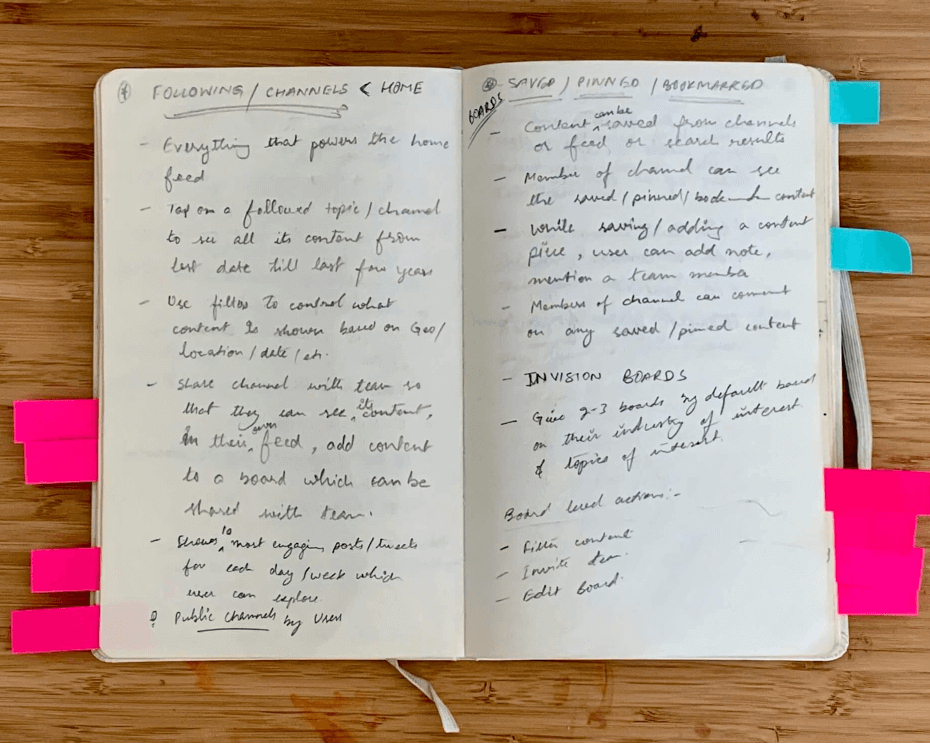 FOLLOWING / CHANNELS < HOME
- Everything that powers the home
feed
- Tap on a followed topic / channel
to see all its content from
last date till last few years
- Use filter to control what
content is shown based on Geo/
location / date / etc.
- Share channel with team so
that they can see its content,
in their own feed, add content
to a board which can be
shared with team.
- Shows 10 most engaging posts / tweets
for each day / week which
user can explore.
Public channels by Users
SAVED / PINNED / BOOKMARKED
BOARDS
- Content can be saved from channels
or feed or search results
- Member of channel can see
the saved / pinned / content
- While saving / adding a content
piece, user can add note,
mention a team member
- Members of channel can comment
on any saved / pinned content
- INVISION BOARDS
- Give 2-3 boards by default based
on their industry of interest
& topics of interest.
Board level actions:-
- Filter content
- Invite team.
- Edit Board.